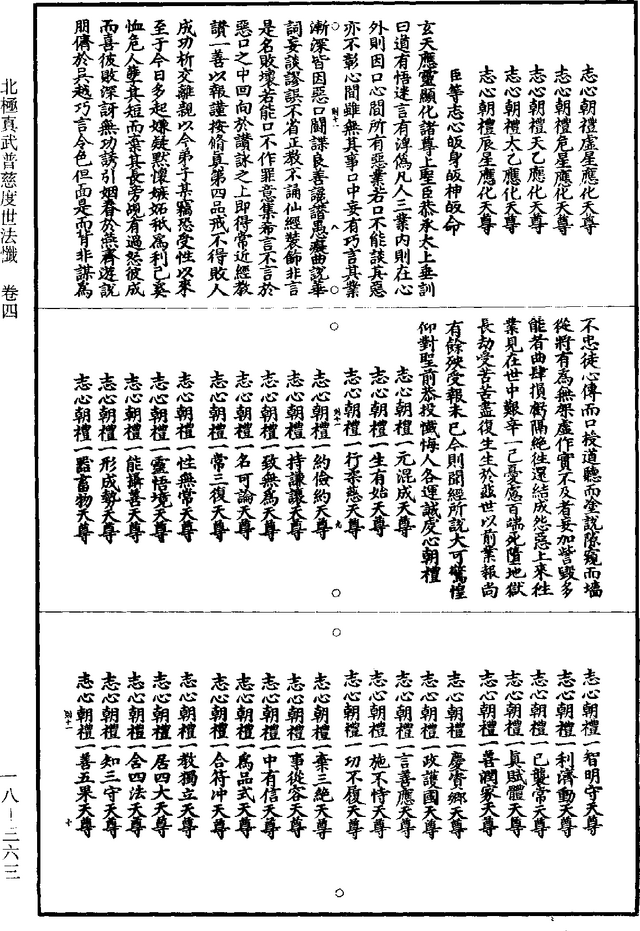 志心朝禮虛星應化天尊
志心朝禮危星應化天尊
志心朝禮天乙應化天尊
志心朝禮太乙應化天尊
志心朝禮辰星應化天尊
臣等志心皈身皈神皈命
玄天應靈顯化諸尊上聖臣恭承太上垂訓
曰道有悟迷言有淳僞凡人三業內則在心
外則因口心間所有惡業若口不能談其惡
亦不彰心間雖無其事口中妄有巧言其業
漸深皆因惡口鬭諜良善讒譖愚癡曲說華
詞妄談謬誤不省正教不誦仙經裝飾非言
是名敗壞若能口不作罪意集希言不言於
惡口之中回向於讚詠之上即得常近經教
讚一善以報謹按脩真第四品戒不得敗人
成功析交離親以今弟子某竊恐受性以來
至于今日多起嫌疑默懷嫉妬秪為利己奚
恤危人孽其短而棄其長旁覬有過怒彼成
而喜彼敗深訝無功誘引姻眷於燕齊遊說
朋儕於吳越巧言令色但面是而背非謀為
不忠徒心傳而口授道聽而塗說隙窺而墻
從將有為無架虛作實不及者妄加訾毀多
能者曲肆損虧隔絕徃還結成怨惡上來徃
業見在世中艱辛一己憂慮百端死墮地獄
長劫受苦苦盡復生生於濁世以前業報尚
有餘殃受報未已今則聞經所說大可驚惶
仰對聖前恭投懺悔人各運誠虔心朝禮
志心朝禮一元混成天尊
志心朝禮一生有始天尊
志心朝禮一行柔慈天尊
志心朝禮一約儉約天尊
志心朝禮一持謙讓天尊
志心朝禮一致無為天尊
志心朝禮一名可論天尊
志心朝禮一常三復天尊
志心朝禮一性無常天尊
志心朝禮一靈悟境天尊
志心朝禮一能攝善天尊
志心朝禮一形成勢天尊
志心朝禮一器畜物天尊
志心朝禮一智明守天尊
志心朝禮一利濟動天尊
志心朝禮一已襲常天尊
志心朝禮一真賦體天尊
志心朝禮一善潤家天尊
志心朝禮一慶賓鄉天尊
志心朝禮一政護國天尊
志心朝禮一言善應天尊
志心朝禮一施不恃天尊
志心朝禮一功不復天尊
志心朝禮一棄三絕天尊
志心朝禮一事從容天尊
志心朝禮一中有信天尊
志心朝禮一為品式天尊
志心朝禮一合符沖天尊
志心朝禮一教獨立天尊
志心朝禮一居四大天尊
志心朝禮一含四法天尊
志心朝禮一知三守天尊
志心朝禮一善五果天尊
北極真武普慈度世法懺 卷四
一八–三六三